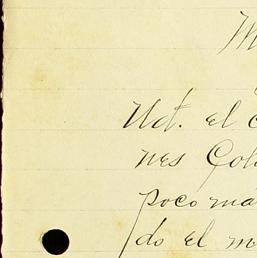 M
Ud. el c
nes Colo
poco má
do el m